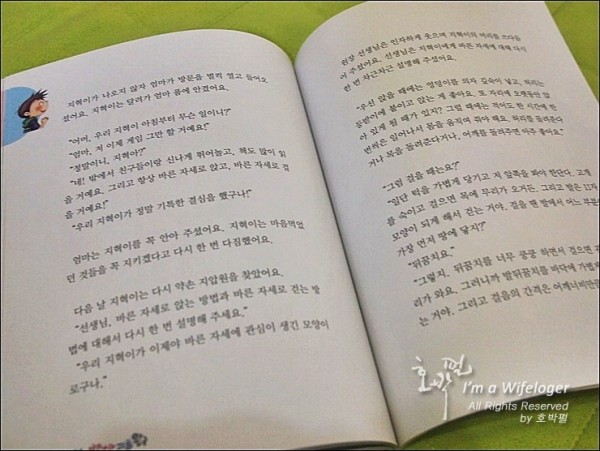 지혁이가 나오지 않자 엄마가 방문을 벌컥 열고 들어오
셨어요. 지혁이는 달려가 엄마 품에 안겼어요.
"어머, 우리 지혁이 아침부터 무슨 일이니?"
"엄마, 저 이제 게임 그만 할 거예요!"
"정말이니, 지혁아?"
"네! 밖에서 친구들이랑 신나게 뛰어놀고, 책도 많이 읽
을 거예요. 그리고 항상 바른 자세로 앉고, 바른 자세로 걸
을 거예요!"
"우리 지혁이가 정말 기특한 결심을 했구나!"
엄마는 지혁이를 꼭 안아 주셨어요. 지혁이는 마음먹었
던 것들을 꼭 지키겠다고 다시 한 번 다짐했어요.
다음 날 지혁이는 다시 약손 지압원을 찾았어요.
"선생님, 바른 자세로 앉는 방법과 바른 자세로 걷는 방
법에 대해서 다시 한 번 설명해 주세요."
"우리 지혁이가 이제야 바른 자세에 관심이 생긴 모양이
로구나."
원장 선생님은 인자하게 웃으며 지혁이의 머리를 쓰다듬
어 주셨어요. 선생님은 지혁이에게 바른 자세에 대해 다시
한 번 차근차근 설명해 주셨어요.
"우선 앉을 때에는 엉덩이를 의자 깊숙이 넣고, 허리는
등받이에 붙이고 앉는 게 좋아요. 또 자리에 오랫동안 앉
아 있게 될 때가 있지? 그럴 때에는 적어도 한 시간에 한
번씩은 일어나서 몸을 움직여 줘야 해요. 허리를 돌려준다
거나 목을 돌려준다거나, 어깨를 돌려주면 아주 좋아요."
"그럼 걸을 때는요?"
"일단 턱을 가볍게 당기고 시선은 앞을 봐야 한단다. 고개
를 숙이고 걸으면 목에 무리가 오거든. 그리고 발은 11자
모양이 되게 해서 걷는 거야. 걸을 땐 발에서 어느 부분이
가장 먼저 땅에 닿지?"
"뒤꿈치요."
"그렇지. 뒤꿈치를 너무 쿵쿵 하면서 걸으면
리가 와요. 그러니까 발뒤꿈치를 바닥에 가볍게
는 거야. 그리고 걸음의 간격은 어깨너비만큼
호박펄
I'm a Wifeloger
All Rights Reserved
by 호박펄